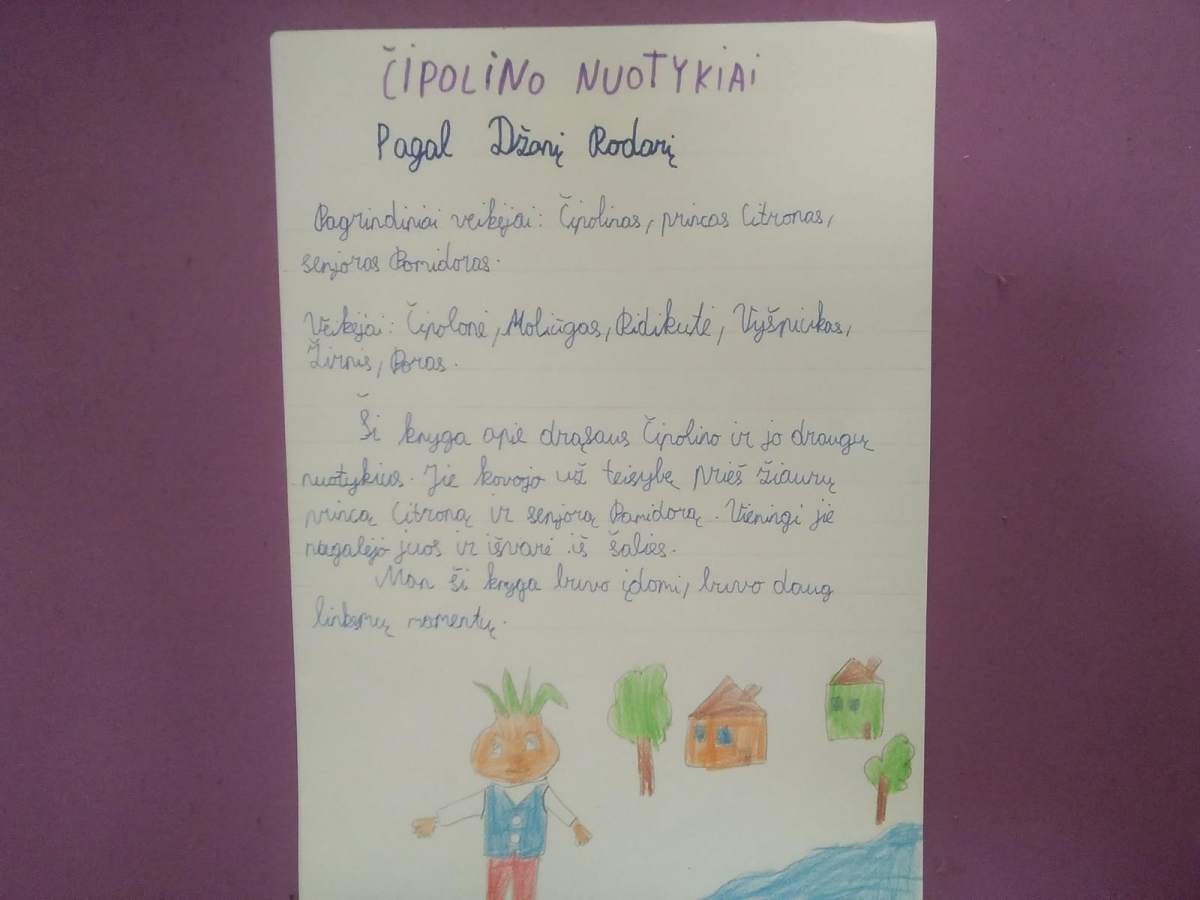 ČIPOLINO NUOTYKIAI
Pagal Džanį Rodarį
Pagrindiniai veikėjai: Čipolinas, princas Citronas,
senjoras Pomidoras.
Veikėjai: Čipolonė, Moliūgas, Ridikutė, Vyšniukas,
Žirnis, Poras.
Ši knyga apie drąsaus Čipolino ir jo draugų
nuotykius. Jie kovojo už teisybę prieš žiaurų
princą Citroną ir senjorą Pamidorą. Vieningi jie
nugalėjo juos ir išvarė iš šalies.
Man ši knyga buvo įdomi, buvo daug
linksmų momentų.